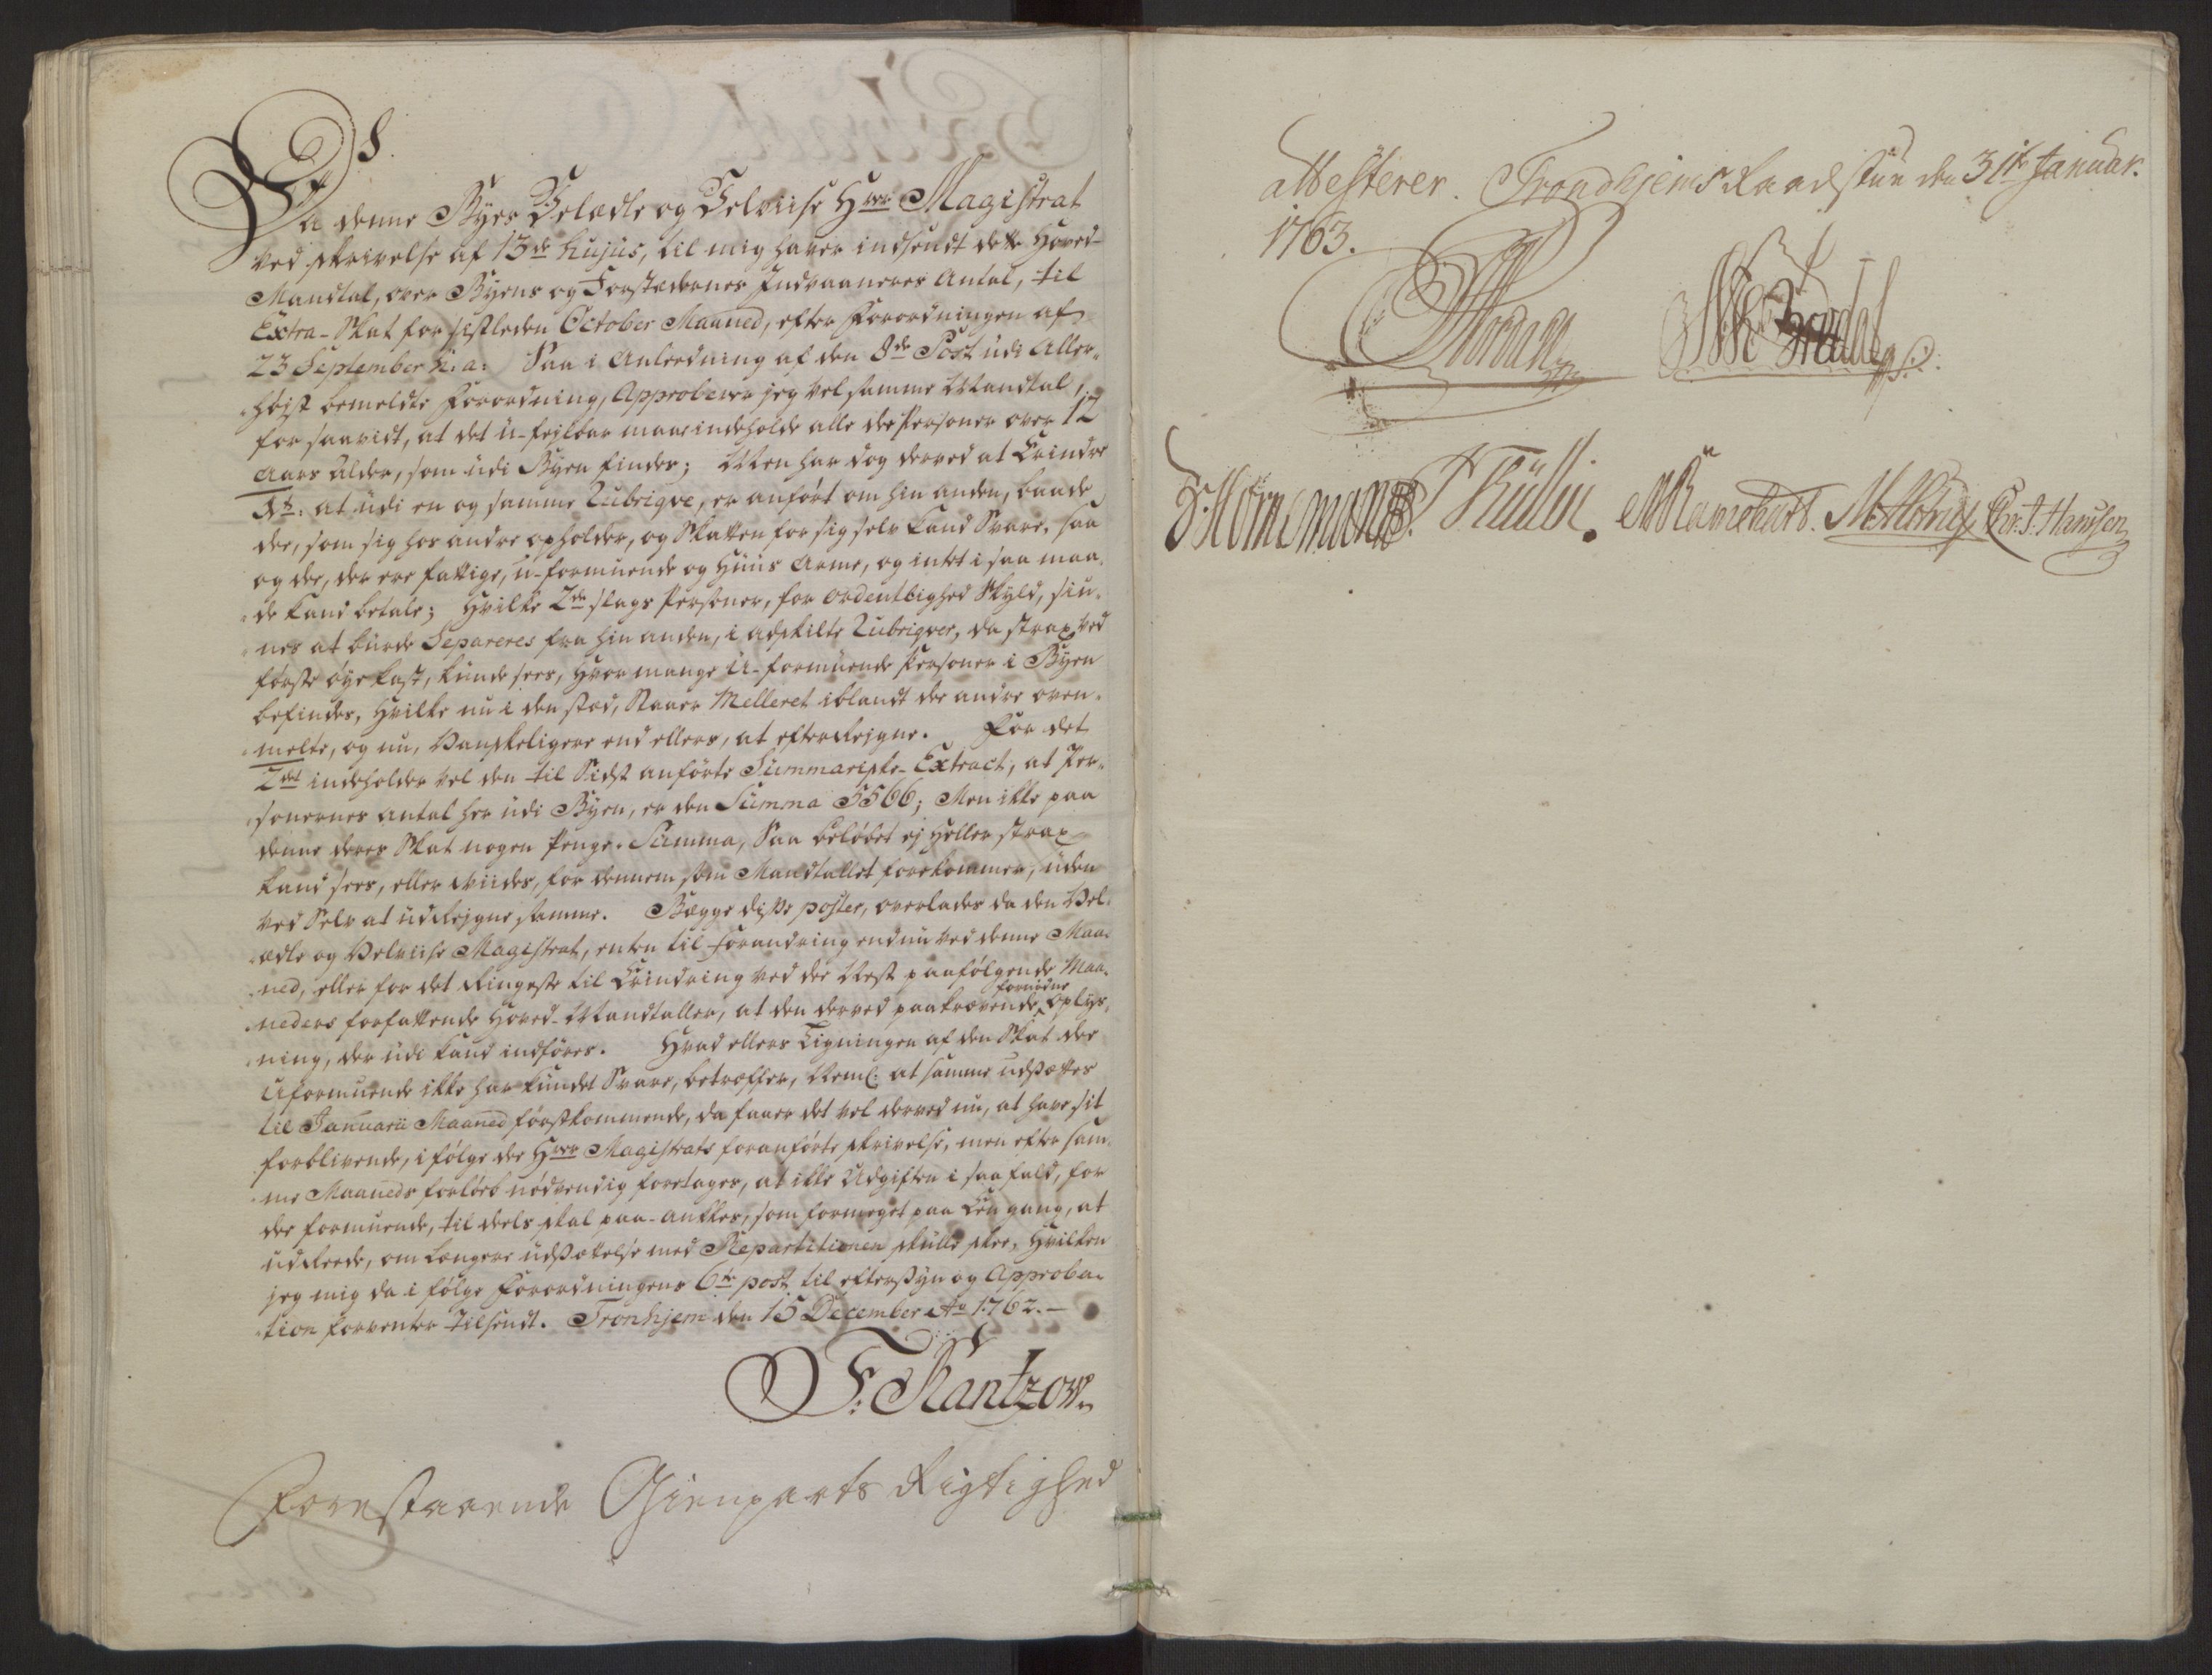 S.
Da denne Byes Velædle og Velviise Hrr Magistrat
ved skrivelse af 13de hujus, til mig haver indsendt dette Hoved-
Mandtal, over Byens og Forstædernes Indvaaneres Antal, til
Extra-Skat for sistleden October Maaned, efter Forordningen af
23 September h: a: Saa i Anleedning af den 8de Post udi Aller-
højst bemeldte Forordning, Approberer jeg vel samme Mandtal,
for saavidt, at det u-fejlbar maae indeholde alle de Personer over 12
Aars Alder, som udi Byen findes; Men har dog derved at Erindre
1te: at udi en og samme Rubriqve, er anført om hin anden, baade
de, som sig hos andre opholder, og Skatten for sig selv kand Svare, saa
og de, der ere fattige, u-formuende og Huus Arme, og intet i saa maa-
de kand betale; Hvilke 2de slags Personer, for ordentlighed Skyld, siu-
nes at burde Separeres fra hin anden, i adskilte Rubriqver, da strax ved
første øyekast, kunde sees, Hvor mange U-formuende Personer i Byen
befindes, Hvilke nu i den sted, Staaer Melleret iblandt de andre oven-
melte, og nu, Vanskeligere end ellers, at efterRejgne. For det
2det indeholder vel den til Sidst anførte Summariske-Extract, at Per-
sonernes antal her udi Byen, er den Summa 5566; Men ikke paa
denne deres Skat nogen Penge-Summa, Saa beløbet ej heller strax
kand sees, eller viides, for dennem som Mandtallet forekommer, uden
ved Selv at udRejgne samme. Begge disse poster, overlades da den Vel-
ædle og Velviise Magistrat, enten til forandring endnu ved denne Maa-
ned, eller for det Ringeste til Erindring ved de Nest paafølgende Maa-
neders forfattende Hoved-Mandtaller, at den derved paakrævende fornødne oplys-
ning, der udi kand indføres. Hvad ellers Ligningen af den Skat de
Uformuende ikke har kundet Svare, betræffer, Neml: at samme udsættes
til Januarii Maaned førstkommende, da faaer det vel derved nu, at have sit
forblivende, i følge de Hrr Magistrats foranførte skrivelse, men efter sam-
me Maaneds forløeb nødvendig foretages, at ikke Udgiften i saa fald, for
de formuende, til deels skal paa-ankkes, som formeget paa Een gang, at
udReede, om længere udsættelse med Repartitionen skulle skee, Hvilken
jeg mig da i følge Forordningens 6te post til eftersyn og Approba-
tion forventer tilsendt. Tronhjem den 15 December Ao 1762.-
F: Rantzow.
Forestaaende Gienparts Rigtighed
Attesterer. Trondhjems Raadstue den 31te Januar.
1763.
F: Hornemann. T Küllin. M Hornef Chr. J. Hansen